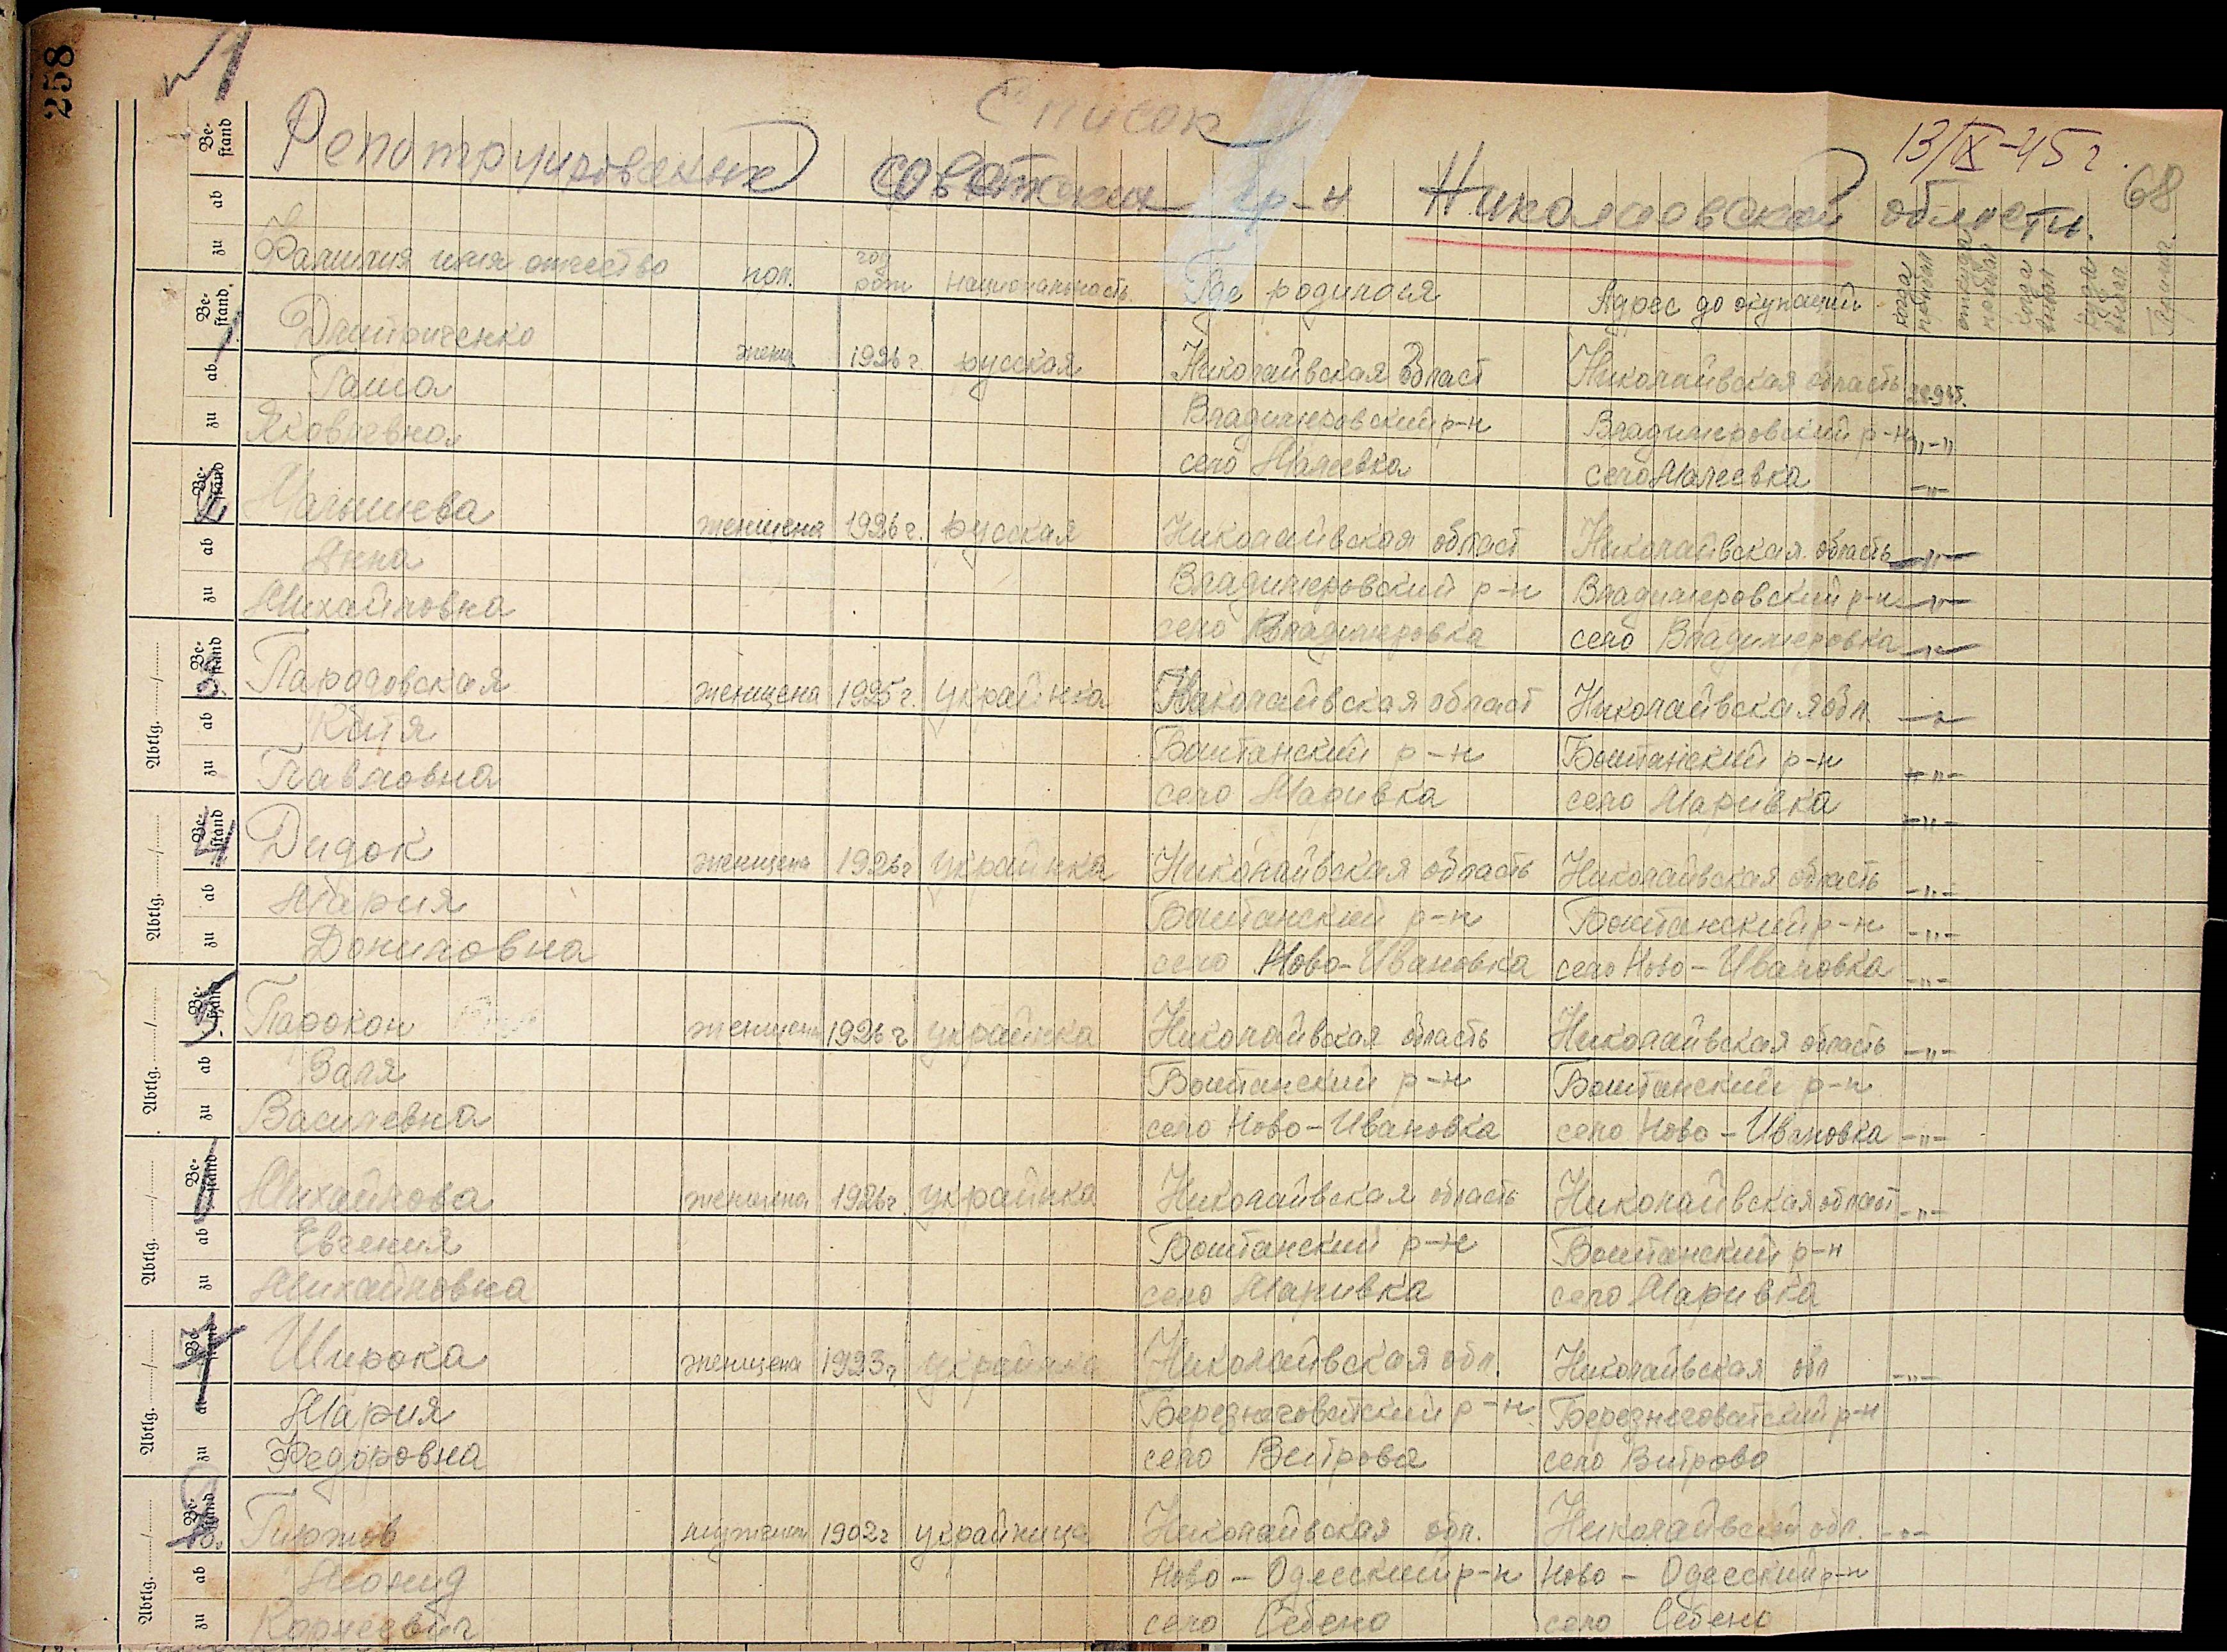 258
1
Список
13/IX-45 г.
Репотриированые советских гр-н Николаевской области. 68
Фамилия имя отчество пол. год рож Национальность. Где родился Адрес до окупаций когда прибыл откуда прибыл куда выбыл
Дмитриченко женщ 1926 г. русская Николайвская област Николайвская область
Гаша Владимеровский р-н Владимеровский р-н -"-
Яковлевна село Малеевка село Малеевка -"-
2 Малышева женщена 1926 г. русская Николайвская област Николайвская область -"-
Анна Владимеровский р-н Владимеровский р-н -"-
Михайловна село Владимеровка село Владимеровка -"-
3 Пародовская женщена 1925 г. украйнка Николайвская област Николайвская обл -"-
Катя Боштанский р-н Боштанский р-н -"-
Павловна село Маривка село Маривка -"-
4 Дидок женщена 1926 г украйнка Николайвская область Николайвская область -"-
Мария Боштанский р-н Боштанский р-н -"-
Дониловна село Ново-Ивановка село Ново-Ивановка -"-
5 Парокон женщена 1926 г украйнка Николайвская область Николайвская область -"-
Валя Боштанский р-н Боштанский р-н
Василевна село Ново-Ивановка село Ново-Ивановка -"-
Михайлова женщена 1926 г. украйнка Николайвская область Николайвская област -"-
Евгения Боштанский р-н Боштанский р-н
Михайловна село Маривка село Маривка
7 Широка женщена 1923 г. украйнка Николайвская обл. Николайвская обл -"-
Мария Березнеговатский р-н Березнеговатский р-н
Федоровна село Витрова село Витрово
8 Гиржов мужчин 1902 г украйница Николайвская обл. Николайвский обл. -"-
Леонид Ново-Одесский р-н Ново-Одесский р-н
Корнеевич село Себено село Себено
Be-
stand
ab
zu
Abtlg.